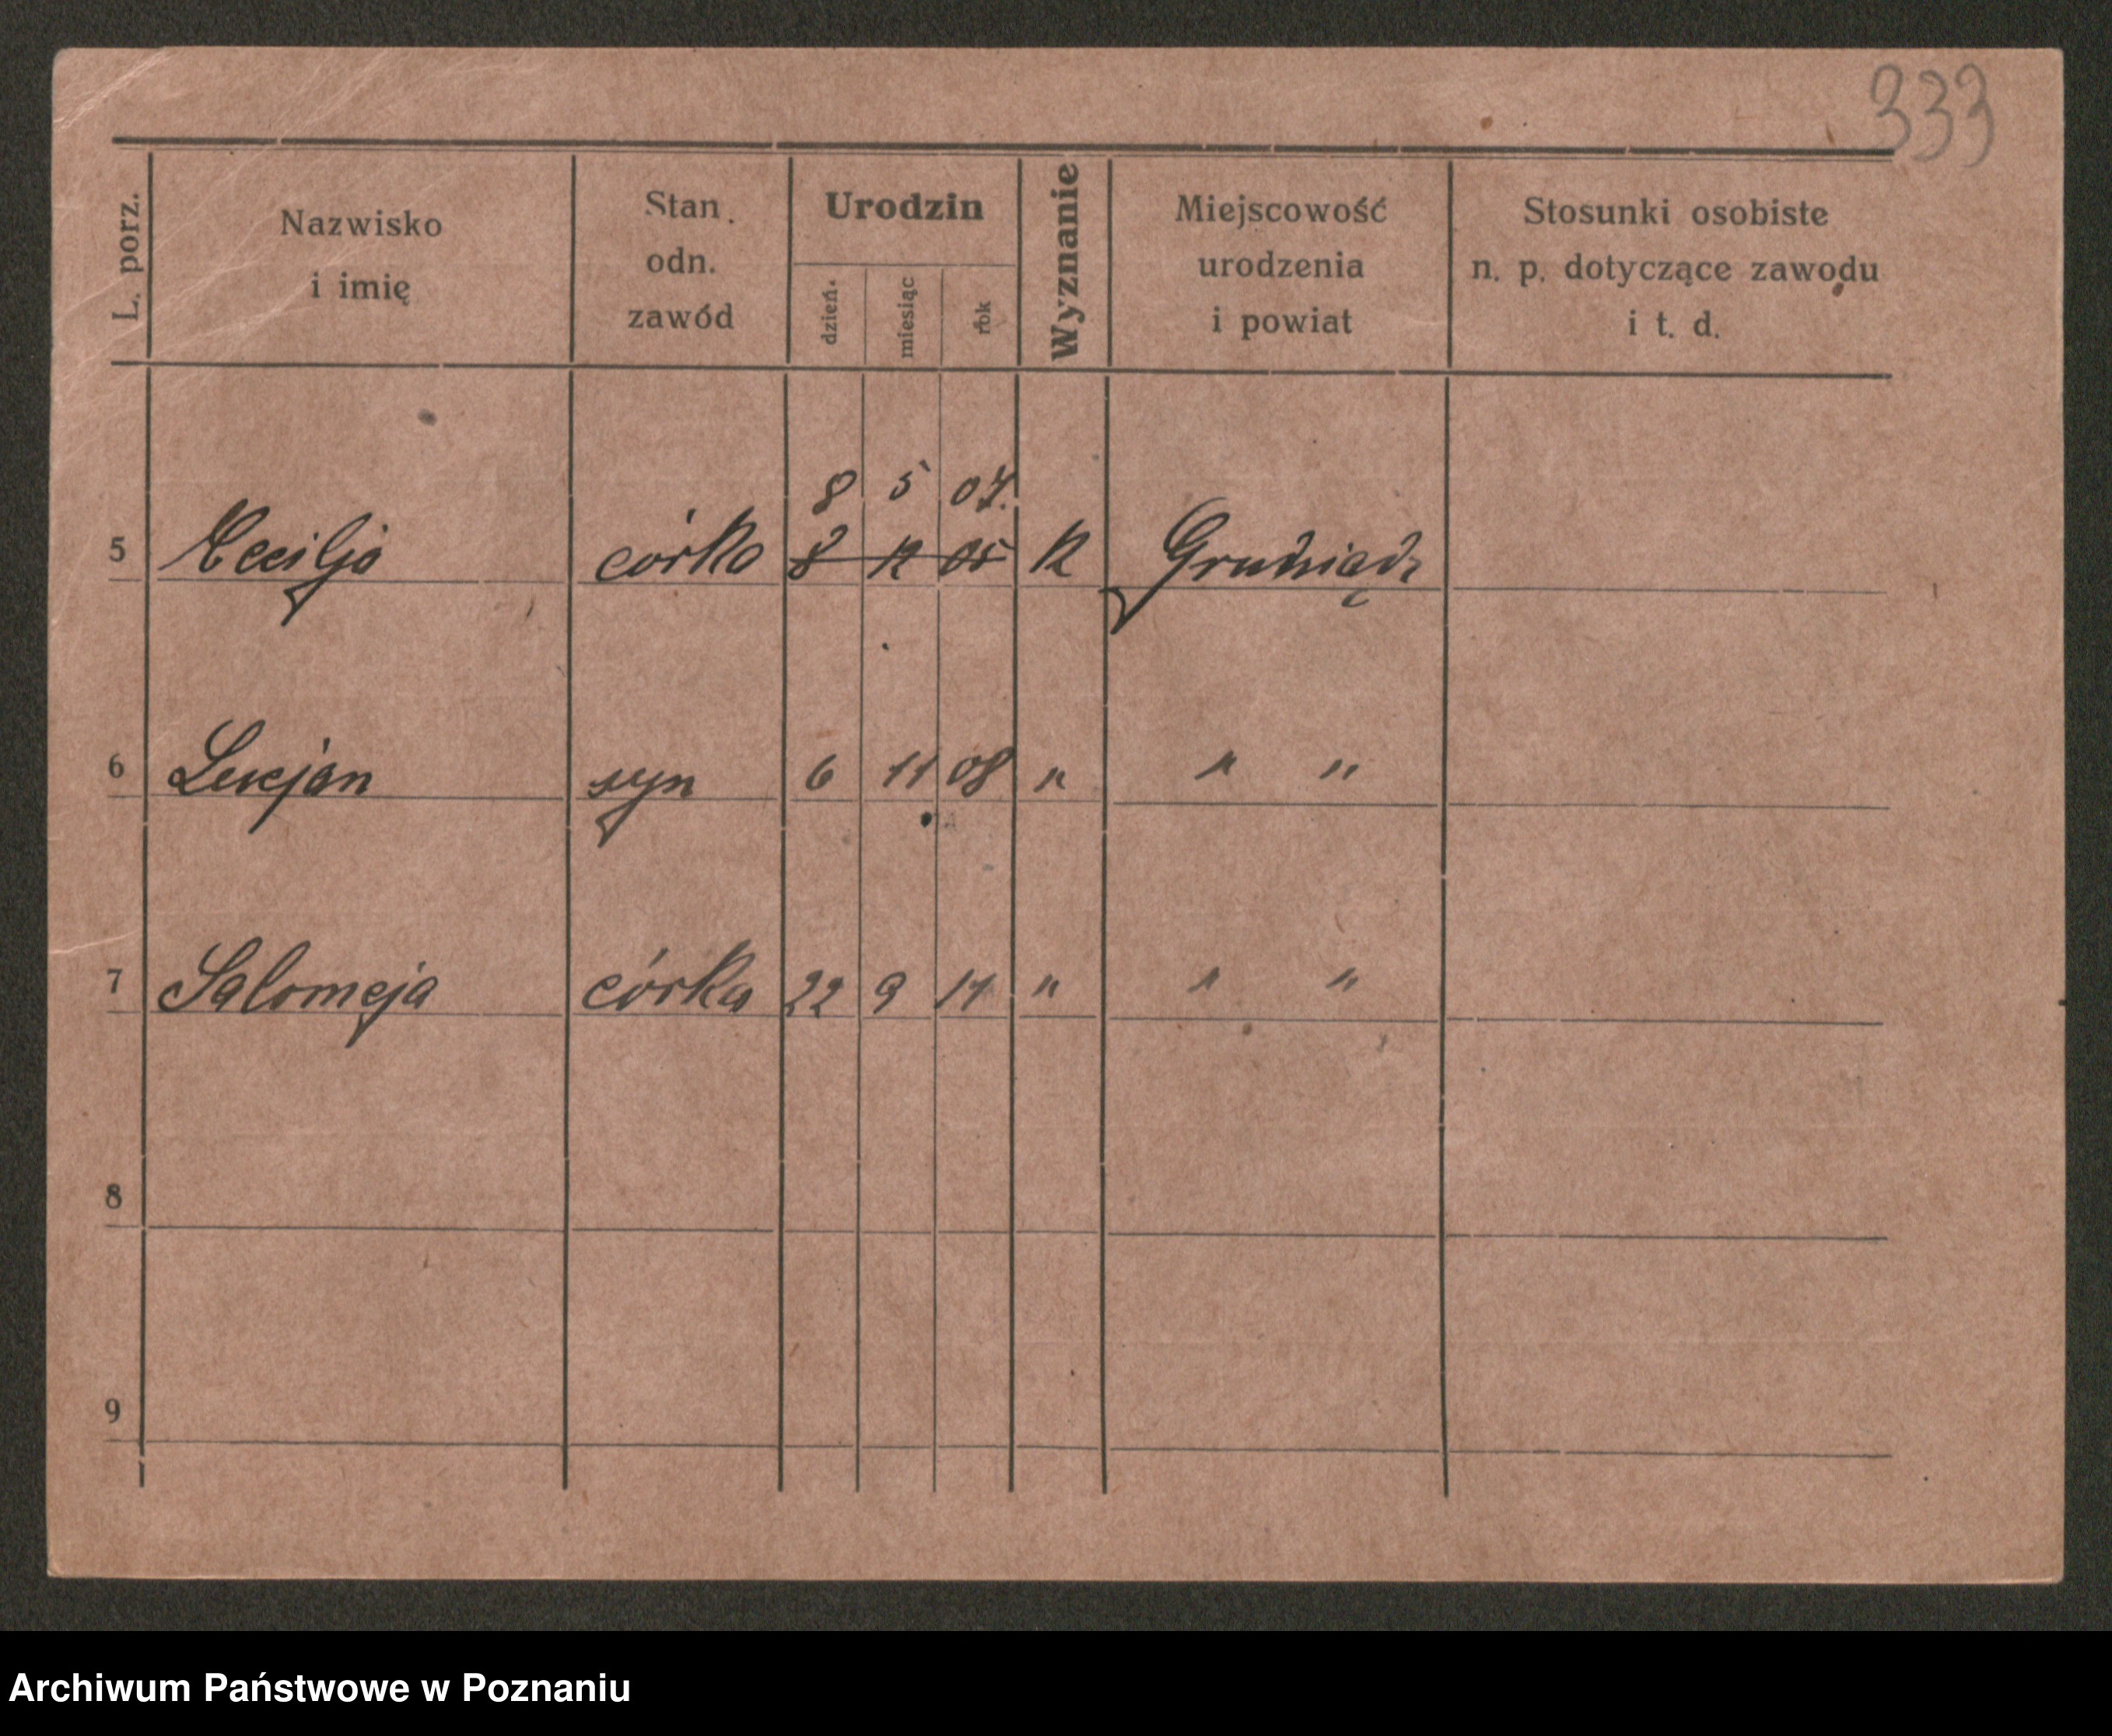 333
L. porz.
Nazwisko
i imię
Stan
odn.
zawód
Urodzin
dzień
miesiąc
rok
Wyznanie
Miejscowość
urodzenia
i powiat
Stosunki osobiste
n. p. dotyczące zawodu
i t. d.
8 5 07.
5 Cecilja córka 8 12 05 K Grudziądz
6 Lucjan syn 6 11 08 " " "
7 Salomeja córka 22 9 11 " " "
8
9
Archiwum Państwowe w Poznaniu